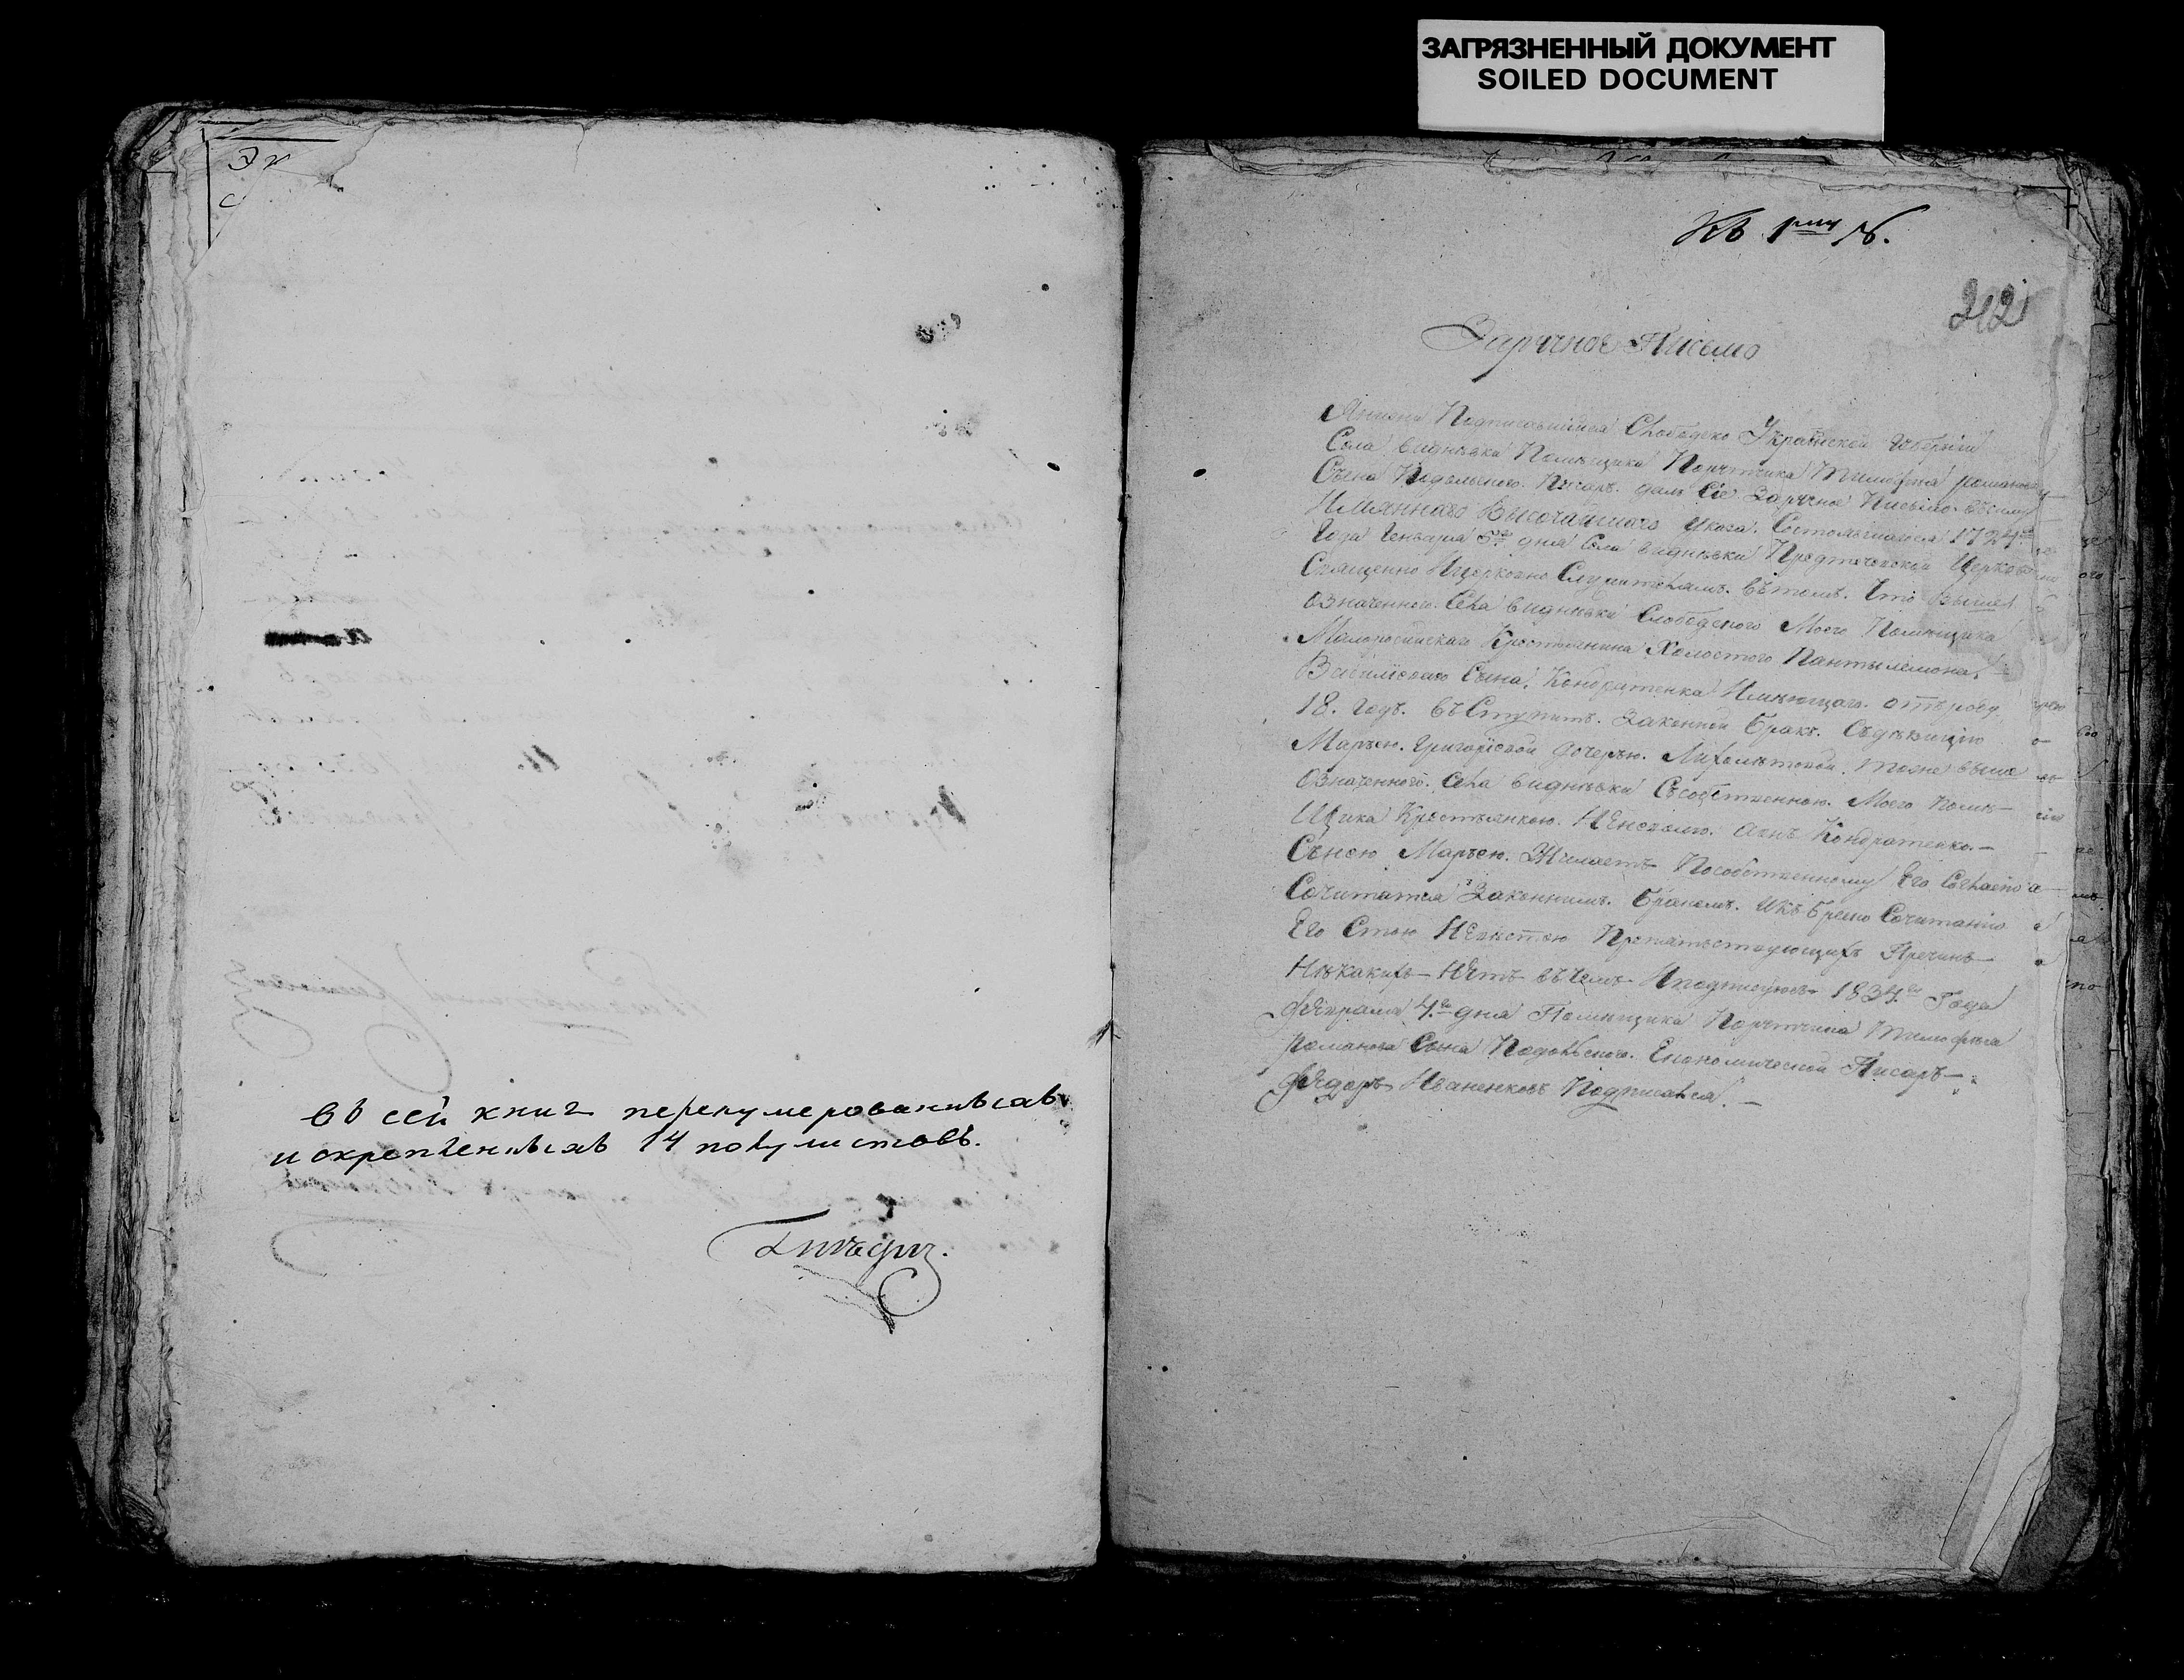 ЗАГРЯЗНЕННЫЙ ДОКУМЕНТ
SOILED DOCUMENT
въ сей книг перенумерованныхъ
и скрепленныхъ 14 полулистовъ.
Къ 1му №.
212
Заручное Письмо
Подписавшийся Слободско Украинской Губерній
Села Помѣщика Порутчика Тимофѣя Романова
Сына Подольского. Писарь. далъ Сіе Заручное Письмо. въ силу
Имяннаго Высочайшаго Указа. Состоявшагося 1724го
Года Генваря 5го дня Села Предтечевской Церкви
Священно Ицерковно Служителямъ. вътомъ. Что выше
Означенного. Села Моего Помѣщика
Малоросійскаго Крестьянина Холостого Пантылемона
Сына. Кондратенка Имѣющаго. отъроду
18. Годъ. въСтупить. Законной Бракъ. Съдѣвицію
Марьею. Григоріевой дочерью. тоже выше
Означенного. Села Ссобственною. Моего Помѣ-
Щика Крестьянкою. Кондратенко.-
Сънею Марьею. Желаетъ Пособственному Его Согласію
Сочитатся Законнимъ. Бракомъ. Икъ Брачно Сочитанію
Его Стою Невѣстою Препятствующихъ Причинъ
Нѣкакихъ Нѣтъ въчемъ Иподписуюсь 1834го Года
февраля 4го дня Помѣщика Порутчика Тимофѣя
Романова Сына Подольского. Економической Писарь-
Федоръ Иваненковъ Подписался.-